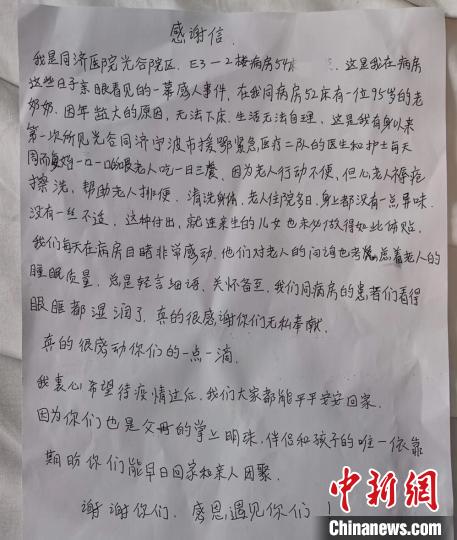 感谢信
我是同济医院光谷院区，E3—2楼病房54 这是我在病房
这些日子亲眼看见的一幕感人事件，在我同病房52床有一位95岁的老
奶奶，因年龄大的原因，无法下床，生活无法自理，这是我有身以来
第一次所见光谷同济宁波市援鄂紧急医疗二队的医生和护士每天
一口一口的喂老人吃一日三餐，因为老人行动不便，担心老人褥疮
擦洗，帮助老人排便，清洗身体，老人住院多日，身上都没有一点异味，
没有一丝不适，这种付出，就连亲生的儿女也未必做得如此体贴
我们每天在病房目睹非常感动，他们对老人的问询也考虑 着老人的
睡眠质量，总是轻言细语，关怀备至，我们同病房的患者们看得
眼眶都湿润了，真的很感谢你们无私奉献，
真的很感动你们的一点一滴，
我衷心希望待疫情过后，我们大家都能平平安安回家，
因为你们也是父母的掌上明珠，伴侣和孩子的唯一依靠
期盼你们能早日回家和亲人团聚，
谢谢你们，感恩遇见你们！
中新网
Chinanews.com